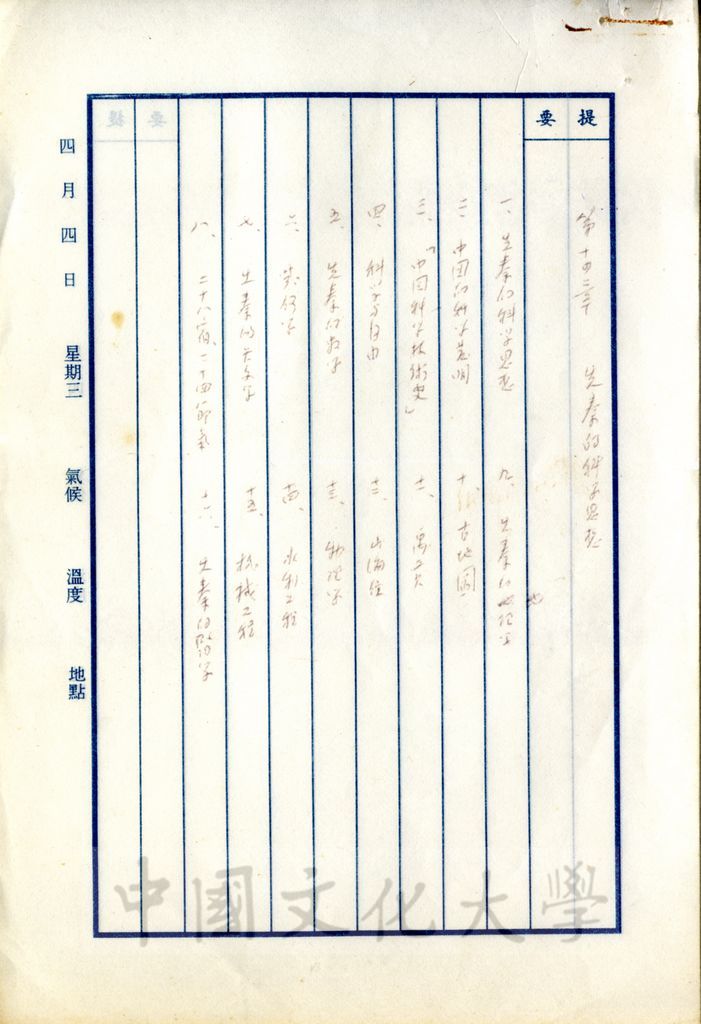 提要
第十四章 先秦的科学思想
一、先秦的科学思想
二、中国的科学发明
三、「中国科学技術史」
四、科学与自由
五、先秦的数学
六、
七、先秦的天文学
八、二十八宿、二十四節氣
九、先秦的地理学
十、古地圖
十一、禹貢
十二、山海经
十三、物理学
十四、水利工程
十五、机械工程
十六、先秦的医学
四月四日 星期三 氣候 溫度 地點
中國文化大學